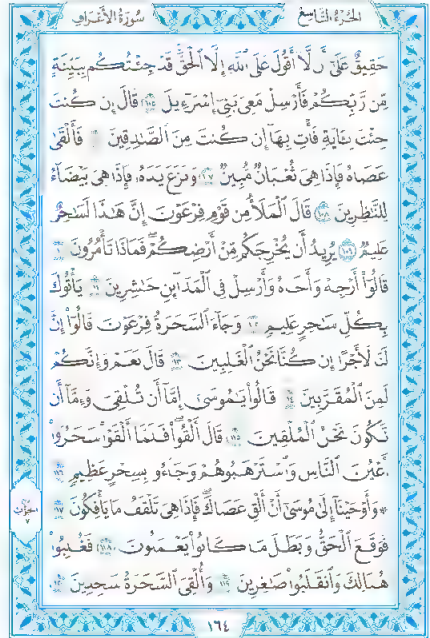 الجزء التاسع سورة الأعراف
حَقِيقٌ عَلَىٰٓ أَن لَّآ أَقُولَ عَلَى ٱللَّهِ إِلَّا ٱلْحَقَّۚ قَدْ جِئْتُكُم بِبَيِّنَةٍ
مِّن رَّبِّكُمْ فَأَرْسِلْ مَعِىَ بَنِىٓ إِسْرَٰٓءِيلَ ١٠٥ قَالَ إِن كُنتَ
جِئْتَ بِـَٔايَةٍ فَأْتِ بِهَآ إِن كُنتَ مِنَ ٱلصَّٰدِقِينَ فَأَلْقَىٰ
عَصَاهُ فَإِذَا هِىَ ثُعْبَانٌ مُّبِينٌ ١٠٧ وَنَزَعَ يَدَهُۥ فَإِذَا هِىَ بَيْضَآءُ
لِلنَّٰظِرِينَ ١٠٨ قَالَ ٱلْمَلَأُ مِن قَوْمِ فِرْعَوْنَ إِنَّ هَٰذَا لَسَٰحِرٌ
عَلِيمٌ ١٠٩ يُرِيدُ أَن يُخْرِجَكُم مِّنْ أَرْضِكُمْۖ فَمَاذَا تَأْمُرُونَ
قَالُوٓا۟ أَرْجِهْ وَأَخَاهُ وَأَرْسِلْ فِى ٱلْمَدَآئِنِ حَٰشِرِينَ يَأْتُوكَ
بِكُلِّ سَٰحِرٍ عَلِيمٍ وَجَآءَ ٱلسَّحَرَةُ فِرْعَوْنَ قَالُوٓا۟ إِنَّ
لَنَا لَأَجْرًا إِن كُنَّا نَحْنُ ٱلْغَٰلِبِينَ قَالَ نَعَمْ وَإِنَّكُمْ
لَمِنَ ٱلْمُقَرَّبِينَ قَالُوا۟ يَٰمُوسَىٰٓ إِمَّآ أَن تُلْقِىَ وَإِمَّآ أَن
نَّكُونَ نَحْنُ ٱلْمُلْقِينَ ١١٥ قَالَ أَلْقُوا۟ۖ فَلَمَّآ أَلْقَوْا۟ سَحَرُوٓا۟
أَعْيُنَ ٱلنَّاسِ وَٱسْتَرْهَبُوهُمْ وَجَآءُو بِسِحْرٍ عَظِيمٍ ١١٦
۞ وَأَوْحَيْنَآ إِلَىٰ مُوسَىٰٓ أَنْ أَلْقِ عَصَاكَۖ فَإِذَا هِىَ تَلْقَفُ مَا يَأْفِكُونَ ١١٧
فَوَقَعَ ٱلْحَقُّ وَبَطَلَ مَا كَانُوا۟ يَعْمَلُونَ ١١٨ فَغُلِبُوا۟
هُنَالِكَ وَٱنقَلَبُوا۟ صَٰغِرِينَ ١١٩ وَأُلْقِىَ ٱلسَّحَرَةُ سَٰجِدِينَ
١٦٤